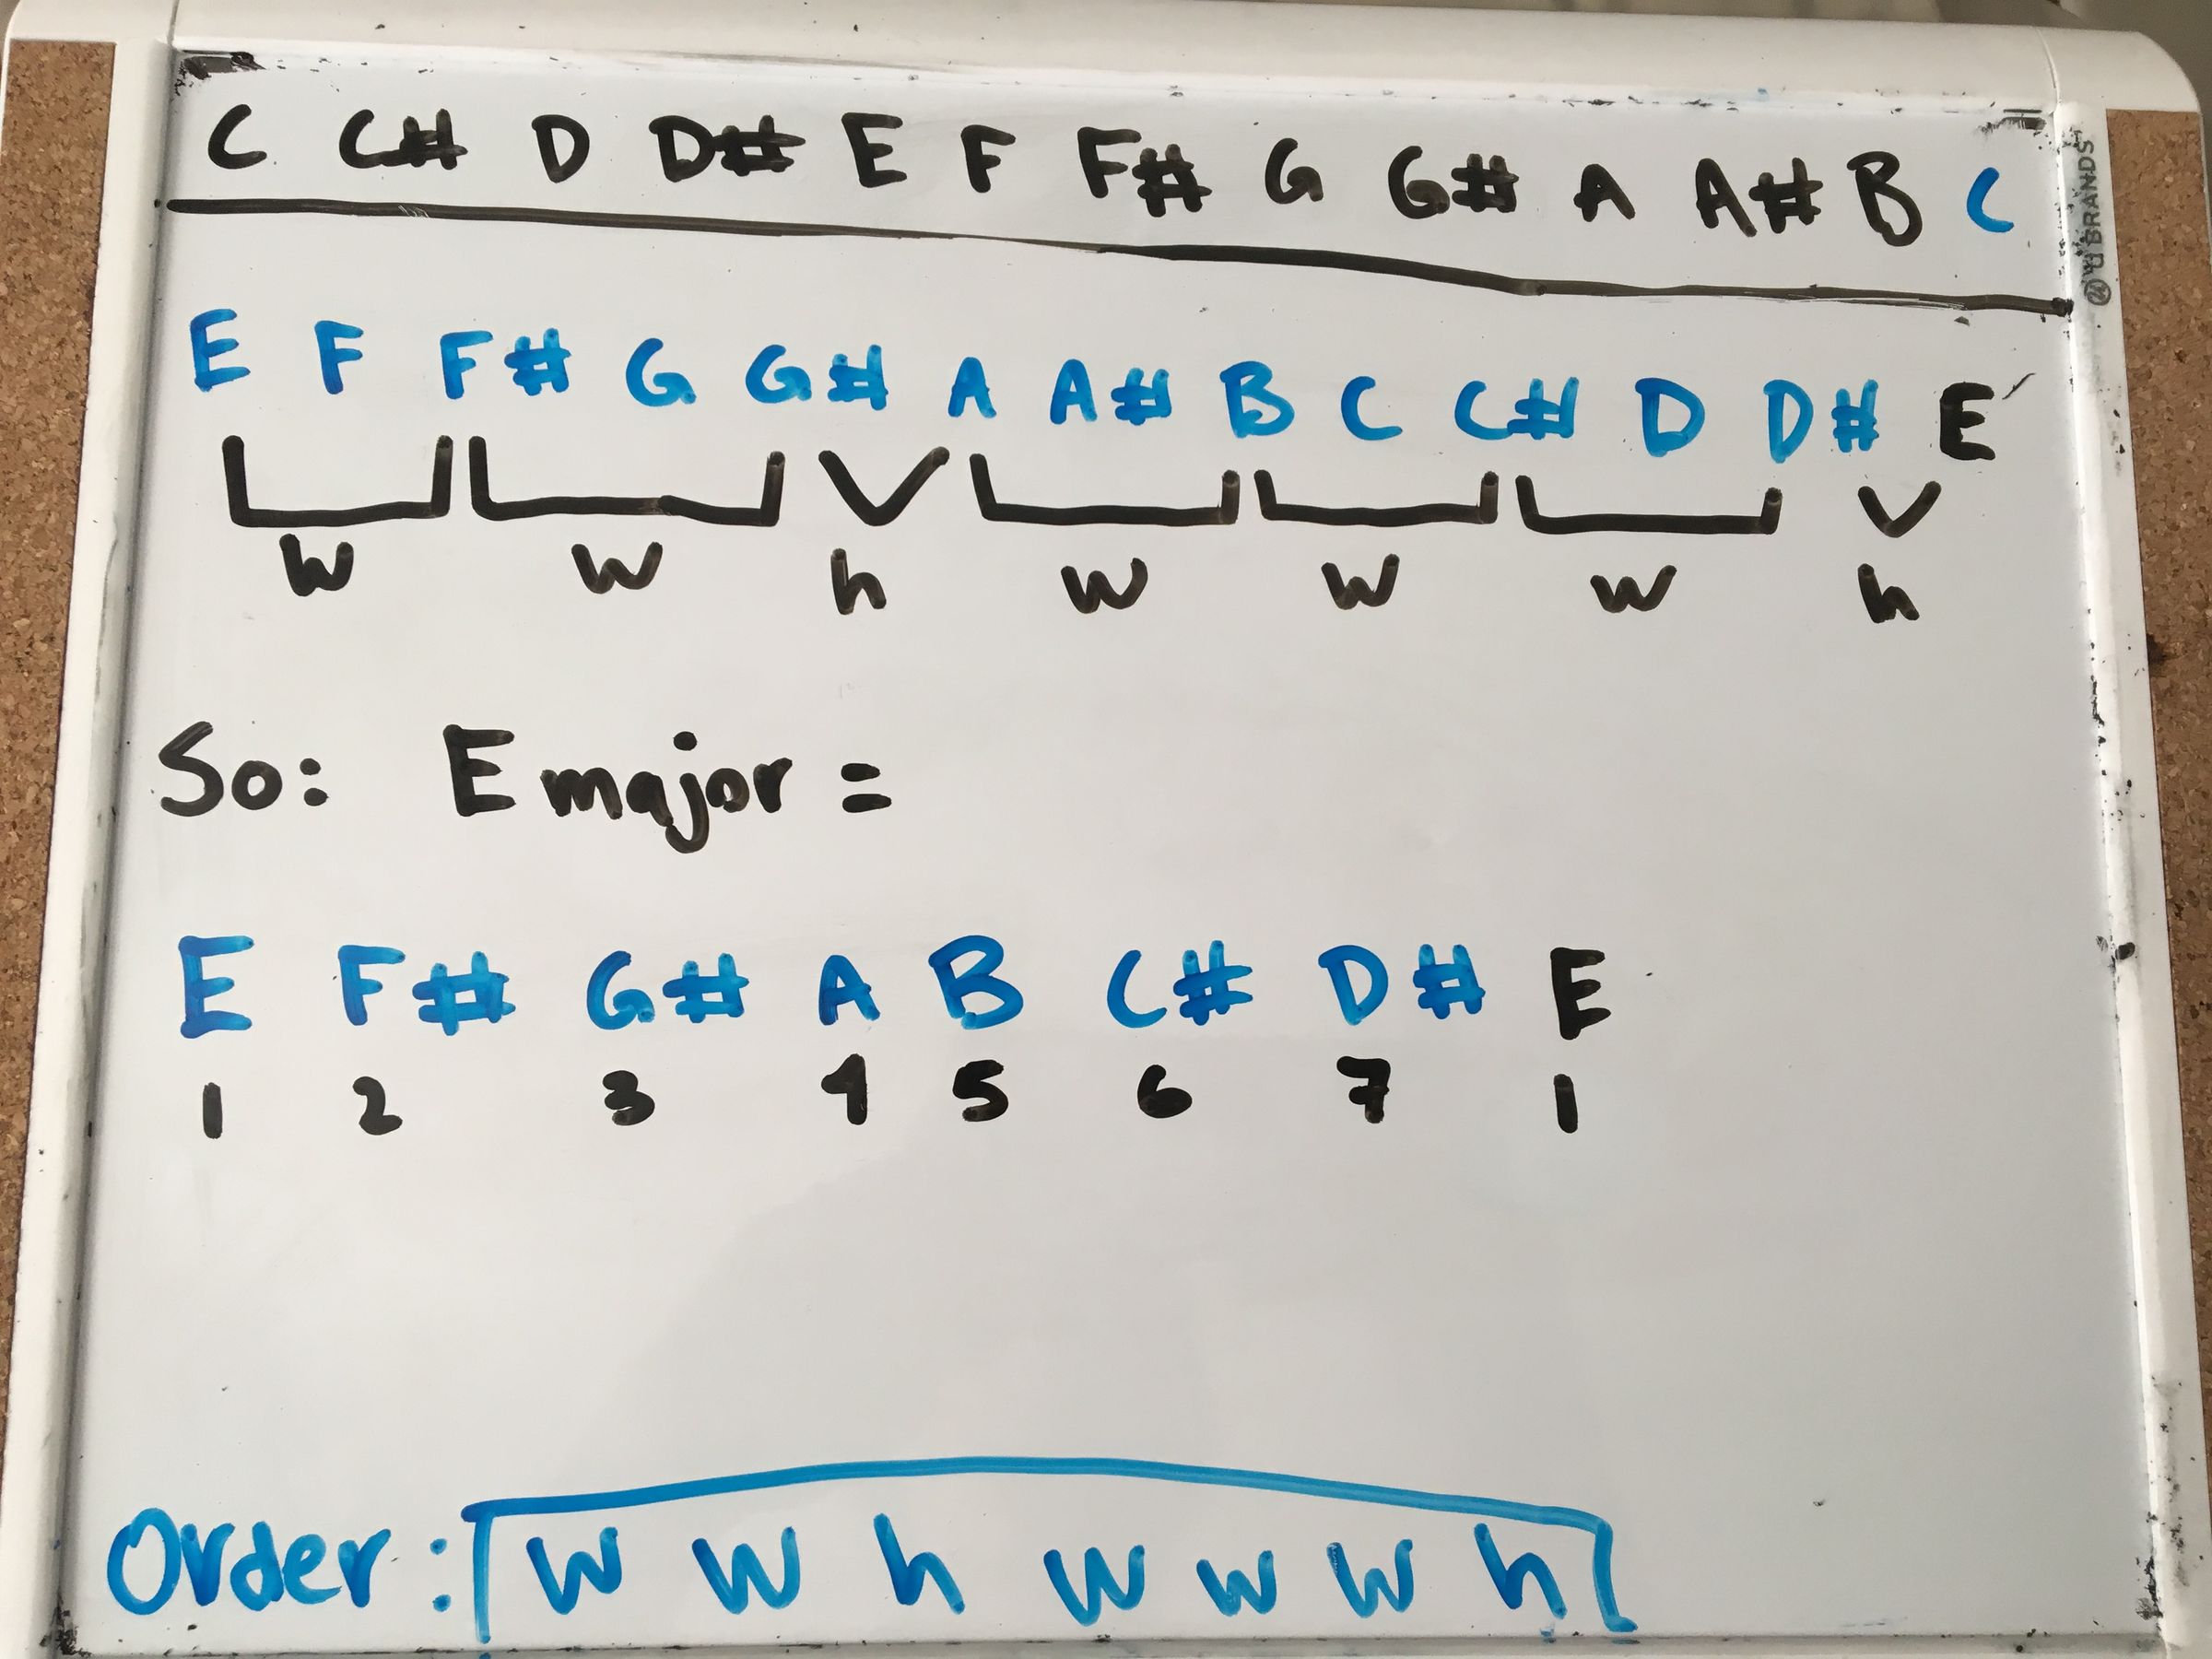 C C# D D# E F F# G G# A A# B C
U BRANDS
E F F# G G# A A# B C C# D D# E
W W h W W W h
So: E major =
E F# G# A B C# D# E
1 2 3 4 5 6 7 1
Order: W W h W W W h